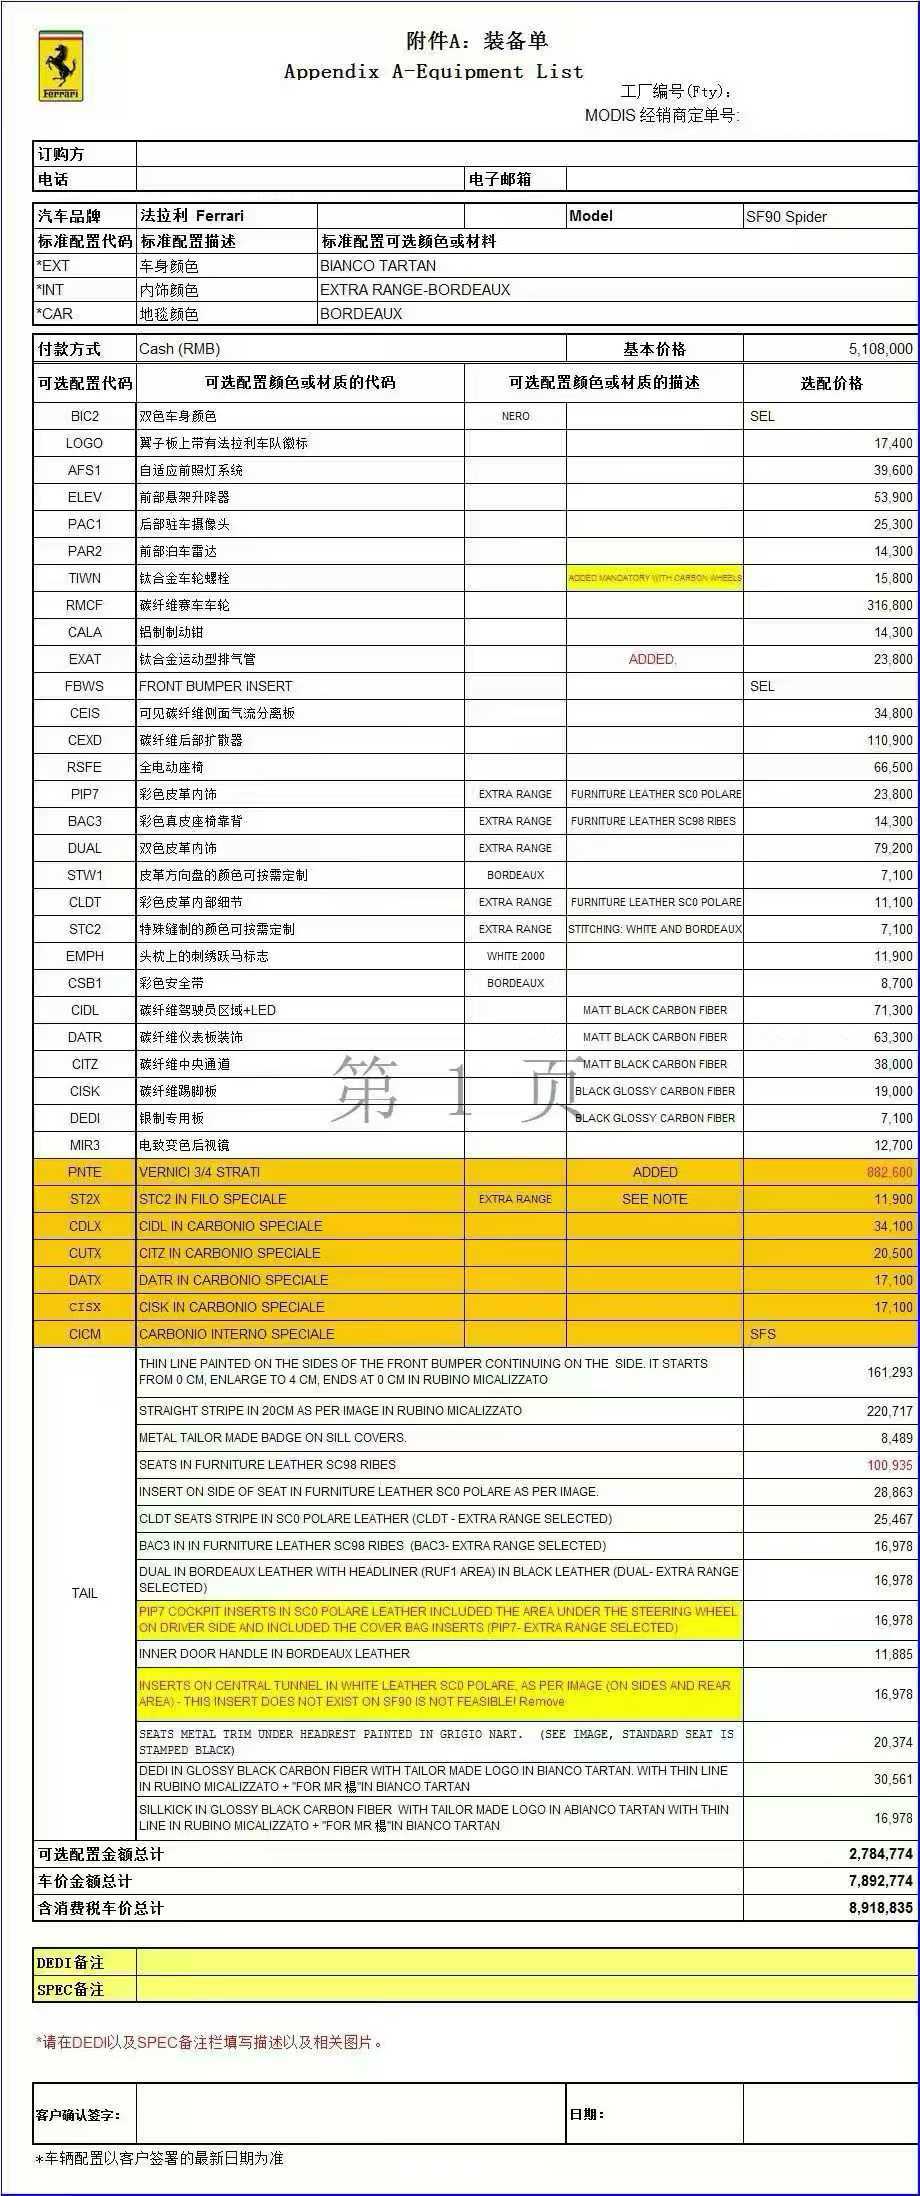 Ferrari
附件A：装备单
Appendix A-Equipment List
工厂编号(Fty)：
MODIS 经销商定单号:
订购方
电话 电子邮箱
汽车品牌 法拉利 Ferrari Model SF90 Spider
标准配置代码 标准配置描述 标准配置可选颜色或材料
*EXT 车身颜色 BIANCO TARTAN
*INT 内饰颜色 EXTRA RANGE-BORDEAUX
*CAR 地毯颜色 BORDEAUX
付款方式 Cash (RMB) 基本价格 5,108,000
可选配置代码 可选配置颜色或材质的代码 可选配置颜色或材质的描述 选配价格
BIC2 双色车身颜色 NERO SEL
LOGO 翼子板上带有法拉利车队徽标 17,400
AFS1 自适应前照灯系统 39,600
ELEV 前部悬架升降器 53,900
PAC1 后部驻车摄像头 25,300
PAR2 前部泊车雷达 14,300
TIWN 钛合金车轮螺栓 ADDED MANDATORY WITH CARBON WHEELS 15,800
RMCF 碳纤维赛车车轮 316,800
CALA 铝制制动钳 14,300
EXAT 钛合金运动型排气管 ADDED, 23,800
FBWS FRONT BUMPER INSERT SEL
CEIS 可见碳纤维侧面气流分离板 34,800
CEXD 碳纤维后部扩散器 110,900
RSFE 全电动座椅 66,500
PIP7 彩色皮革内饰 EXTRA RANGE FURNITURE LEATHER SC0 POLARE 23,800
BAC3 彩色真皮座椅靠背 EXTRA RANGE FURNITURE LEATHER SC98 RIBES 14,300
DUAL 双色皮革内饰 EXTRA RANGE 79,200
STW1 皮革方向盘的颜色可按需定制 BORDEAUX 7,100
CLDT 彩色皮革内部细节 EXTRA RANGE FURNITURE LEATHER SC0 POLARE 11,100
STC2 特殊缝制的颜色可按需定制 EXTRA RANGE STITCHING: WHITE AND BORDEAUX 7,100
EMPH 头枕上的刺绣跃马标志 WHITE 2000 11,900
CSB1 彩色安全带 BORDEAUX 8,700
CIDL 碳纤维驾驶员区域+LED MATT BLACK CARBON FIBER 71,300
DATR 碳纤维仪表板装饰 MATT BLACK CARBON FIBER 63,300
CITZ 碳纤维中央通道 MATT BLACK CARBON FIBER 38,000
第 1 页
CISK 碳纤维踢脚板 BLACK GLOSSY CARBON FIBER 19,000
DEDI 银制专用板 BLACK GLOSSY CARBON FIBER 7,100
MIR3 电致变色后视镜 12,700
PNTE VERNICI 3/4 STRATI ADDED 882,600
ST2X STC2 IN FILO SPECIALE EXTRA RANGE SEE NOTE 11,900
CDLX CIDL IN CARBONIO SPECIALE 34,100
CUTX CITZ IN CARBONIO SPECIALE 20,500
DATX DATR IN CARBONIO SPECIALE 17,100
CISX CISK IN CARBONIO SPECIALE 17,100
CICM CARBONIO INTERNO SPECIALE SFS
TAIL
THIN LINE PAINTED ON THE SIDES OF THE FRONT BUMPER CONTINUING ON THE SIDE. IT STARTS
FROM 0 CM, ENLARGE TO 4 CM, ENDS AT 0 CM IN RUBINO MICALIZZATO 161,293
STRAIGHT STRIPE IN 20CM AS PER IMAGE IN RUBINO MICALIZZATO 220,717
METAL TAILOR MADE BADGE ON SILL COVERS. 8,489
SEATS IN FURNITURE LEATHER SC98 RIBES 100,935
INSERT ON SIDE OF SEAT IN FURNITURE LEATHER SC0 POLARE AS PER IMAGE. 28,863
CLDT SEATS STRIPE IN SC0 POLARE LEATHER (CLDT - EXTRA RANGE SELECTED) 25,467
BAC3 IN IN FURNITURE LEATHER SC98 RIBES (BAC3- EXTRA RANGE SELECTED) 16,978
DUAL IN BORDEAUX LEATHER WITH HEADLINER (RUF1 AREA) IN BLACK LEATHER (DUAL- EXTRA RANGE
SELECTED) 16,978
PIP7 COCKPIT INSERTS IN SC0 POLARE LEATHER INCLUDED THE AREA UNDER THE STEERING WHEEL
ON DRIVER SIDE AND INCLUDED THE COVER BAG INSERTS (PIP7- EXTRA RANGE SELECTED) 16,978
INNER DOOR HANDLE IN BORDEAUX LEATHER 11,885
INSERTS ON CENTRAL TUNNEL IN WHITE LEATHER SC0 POLARE, AS PER IMAGE (ON SIDES AND REAR
AREA) - THIS INSERT DOES NOT EXIST ON SF90 IS NOT FEASIBLE! Remove 16,978
SEATS METAL TRIM UNDER HEADREST PAINTED IN GRIGIO NART. (SEE IMAGE, STANDARD SEAT IS
STAMPED BLACK) 20,374
DEDI IN GLOSSY BLACK CARBON FIBER WITH TAILOR MADE LOGO IN BIANCO TARTAN. WITH THIN LINE
IN RUBINO MICALIZZATO + "FOR MR 楊"IN BIANCO TARTAN 30,561
SILLKICK IN GLOSSY BLACK CARBON FIBER WITH TAILOR MADE LOGO IN ABIANCO TARTAN WITH THIN
LINE IN RUBINO MICALIZZATO + "FOR MR 楊"IN BIANCO TARTAN 16,978
可选配置金额总计 2,784,774
车价金额总计 7,892,774
含消费税车价总计 8,918,835
DEDI备注
SPEC备注
*请在DEDI以及SPEC备注栏填写描述以及相关图片。
客户确认签字： 日期：
*车辆配置以客户签署的最新日期为准